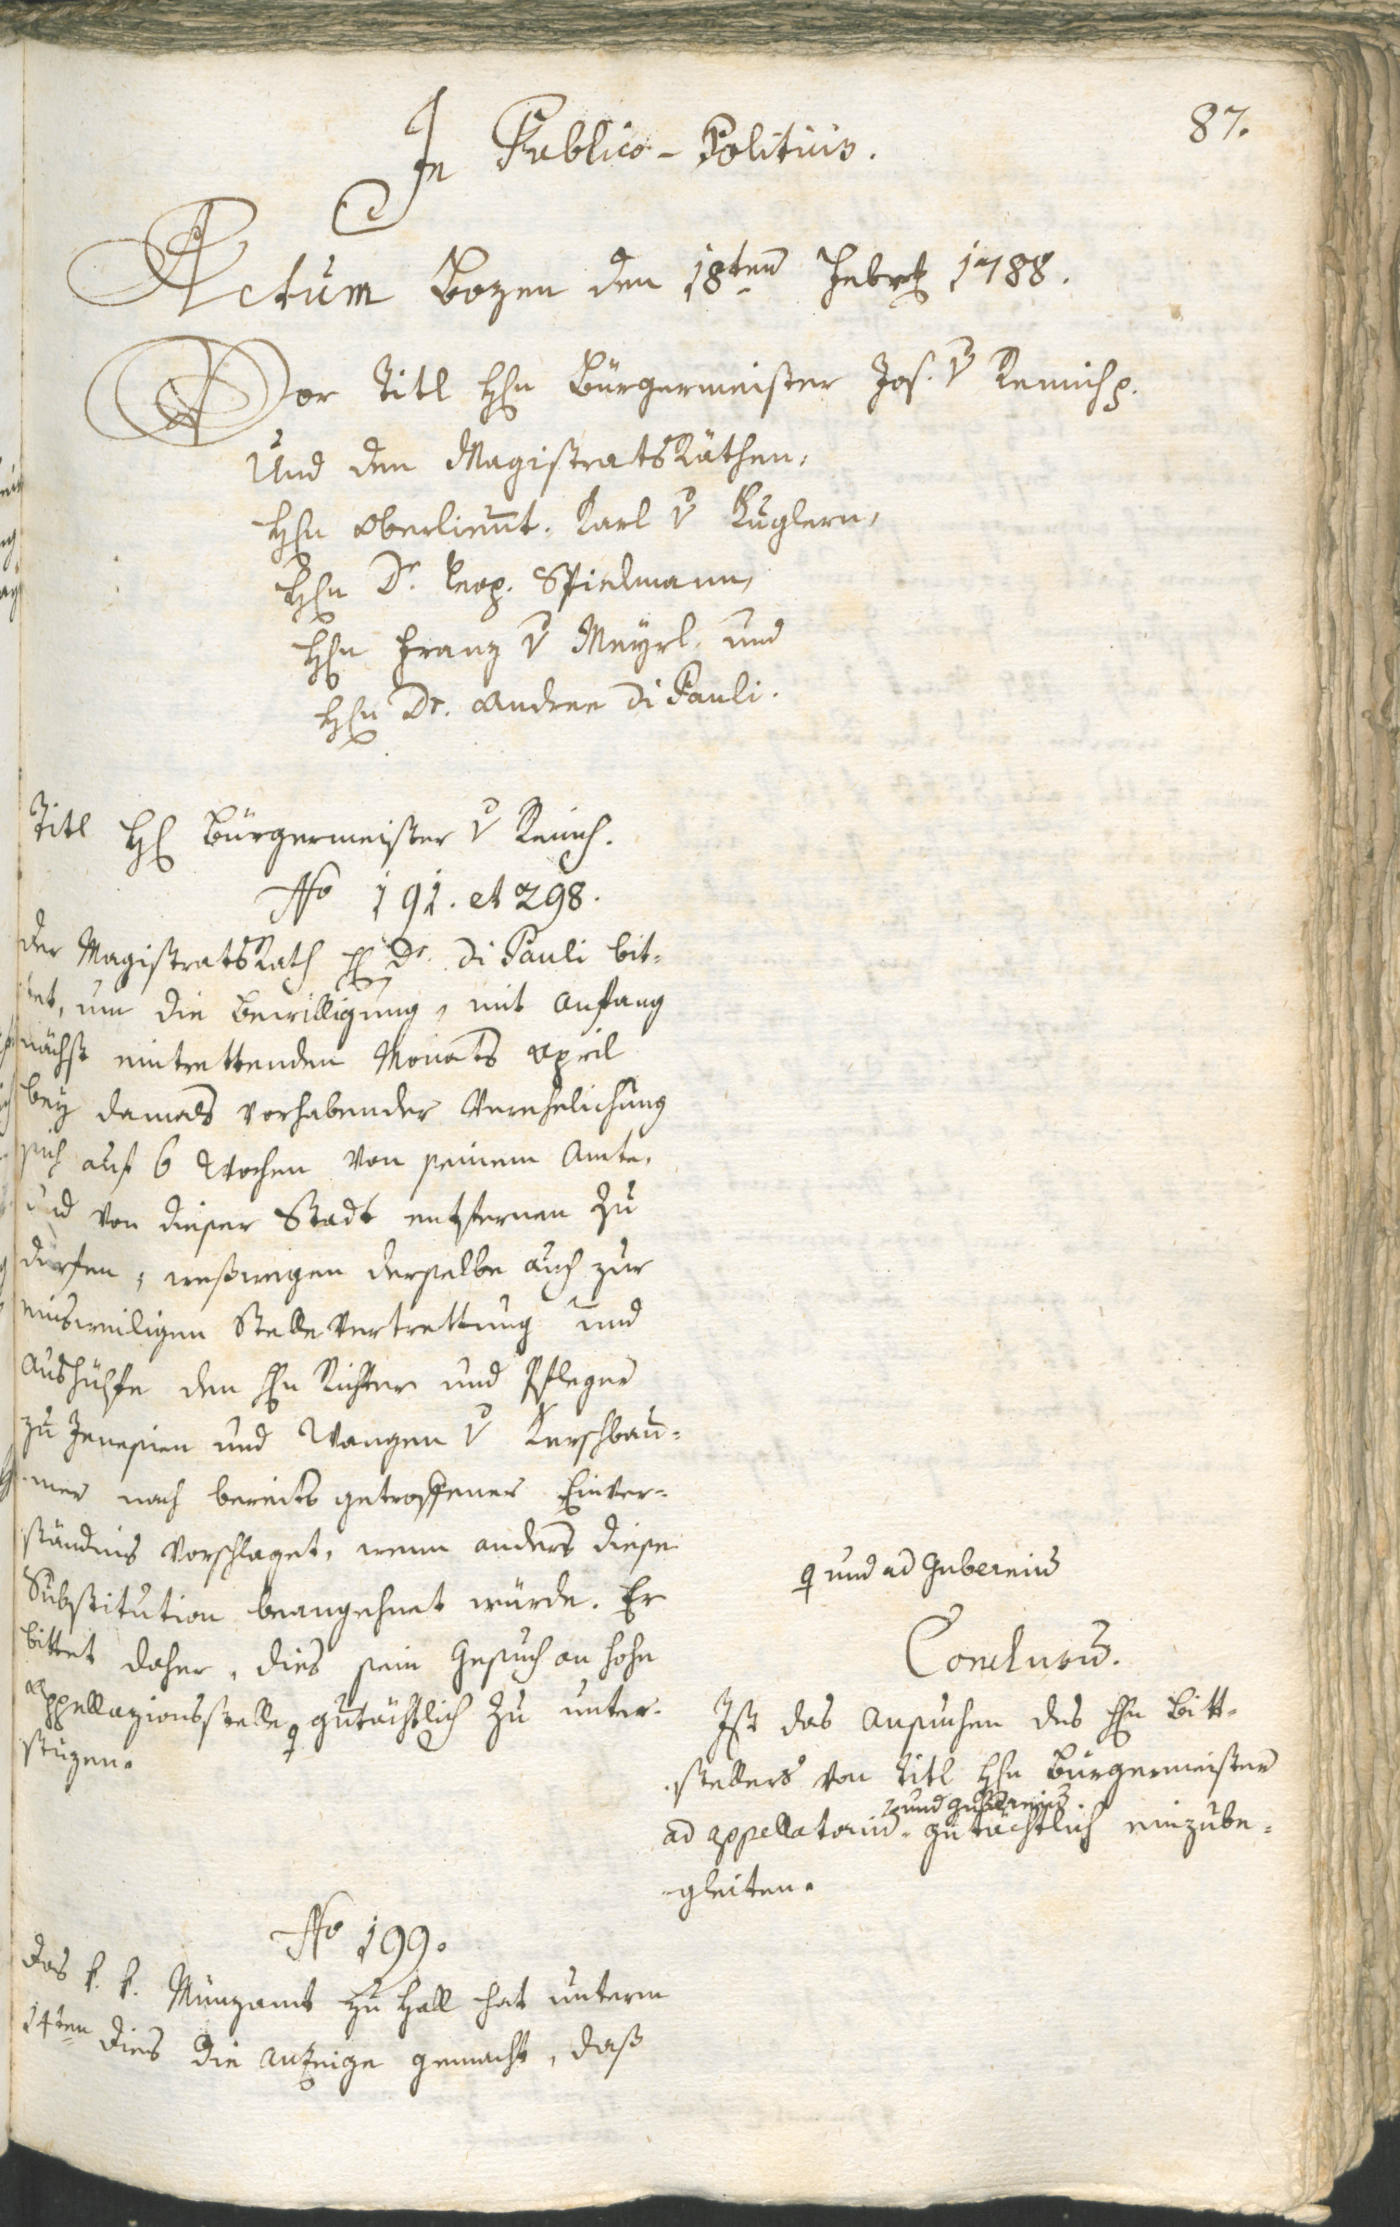 87.
In Publico-Politicis.
Actum Bozen den 18ten Hebr 1788.
Vor Titl Hrn Bürgermeister Jos. v Remich p.
Und den MagistratsRäthen,
Hrn Oberlieunt. Karl v Kuglern,
Hrn Dr. Leop. Spielmann,
Hrn Franz v Mayrl, und
Hrn Dr. Andree Di Pauli.
Titl Hr Bürgermeister v Remich.
No 191. et 298.
Der MagistratsRath H Dr. Di Pauli bit-
tet, um die Bewilligung, mit Anfang
nächst eintrettenden Monats April
bey damals vorhabender Verehelichung
sich auf 6 Wochen von seinem Amte,
und von dieser Stadt entfernen zu
dürfen, weßwegen derselbe auch zur
einsweiligen Stelle Vertrettung und
Aushülfe den Hrn Richter und Pfleger
zu Jenesien und Wangen v Kerschbau-
mer nach bereits getroffener Einver-
ständnis vorschlaget, wenn anders diese
Substitution beangehnet würde. Er
bittet daher, dies sein Gesuch an hohe
Appellazionsstelle gutächtlich zu unter-
stüzen.
und ad Gubernium
Conclusum.
Ist das Ansuchen des Hrn Bitt-
stellers von Titl Hrn Bürgermeister
und Gubernium
ad Appellatorium gutächtlich einzube-
gleiten.
No 199.
Das k. k. Münzamt zu Hall hat unterm
14ten dies die Anzeige gemacht, daß